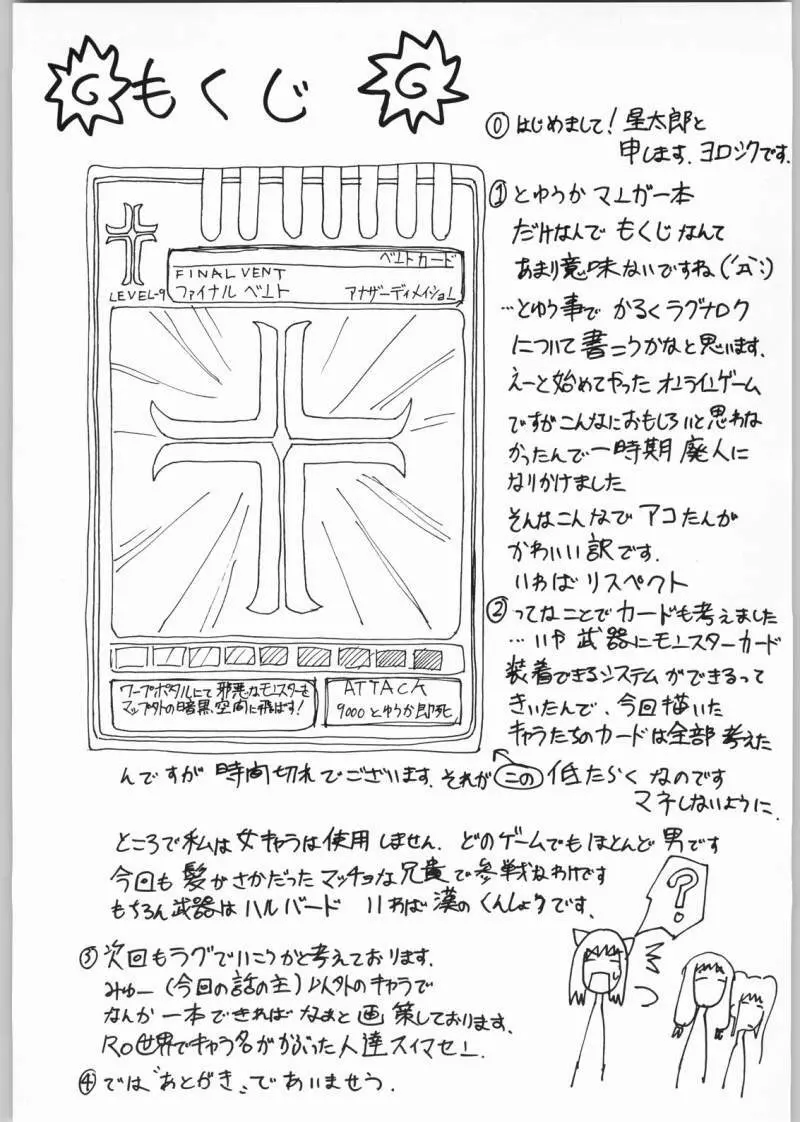 G もくじ G
⓪ はじめまして!星太郎と
申します.ヨロシクです.
① とゆうかマンガ一本
だけなんで もくじなんて
あまり意味ないですね(´Д`;)
…とゆう事で かるくラグナロク
について書こうかなと思います.
えーと始めてやったオンラインゲーム
ですがこんなにおもしろいと思わな
かったんで一時期 廃人に
なりかけました
そんなこんなで アコたんが
かわいい訳です.
いわば リスペクト
② ってなことでカードも考えました
…いや 武器にモンスターカード
装着できるシステムができるって
きいたんで、今回描いた
キャラたちのカードは全部 考えた
んですが 時間切れでございます.それが この 低たらく なのです
マネしないように.
LEVEL-9
ベントカード
FINAL VENT
ファイナル ベント
アナザーディメイション
ワープポタルにて邪悪なモンスターを
マップ外の暗黒空間に飛ばす!
ATTACK
9000とゆうか即死
ところで私は女キャラは使用しません.どのゲームでもほとんど男です
今回も 髪がさかだったマッチョな兄貴で参戦なわけです
もちろん武器は ハルバード いわば漢のくんしょうです.
?
③ 次回もラグでいこうかと考えております.
みゅー(今回の話の主)以外のキャラで
なんか一本できればなぁと画策しております.
RO世界でキャラ名がかぶった人達スイマセン.
④ では"あとがき"であいませう.